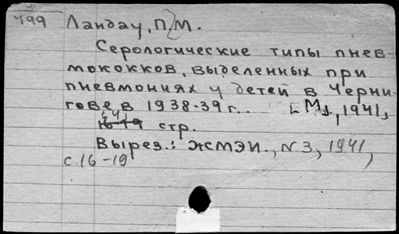 499 Ландау, П.М.
Серологические типы пнев-
мококков, выделенных при
пневмониях у детей в Черни-
гове в 1938-39 г. [М.], 1941,
стр.
Вырез.: ЖМЭИ., N3, 1941,
с. 16-19